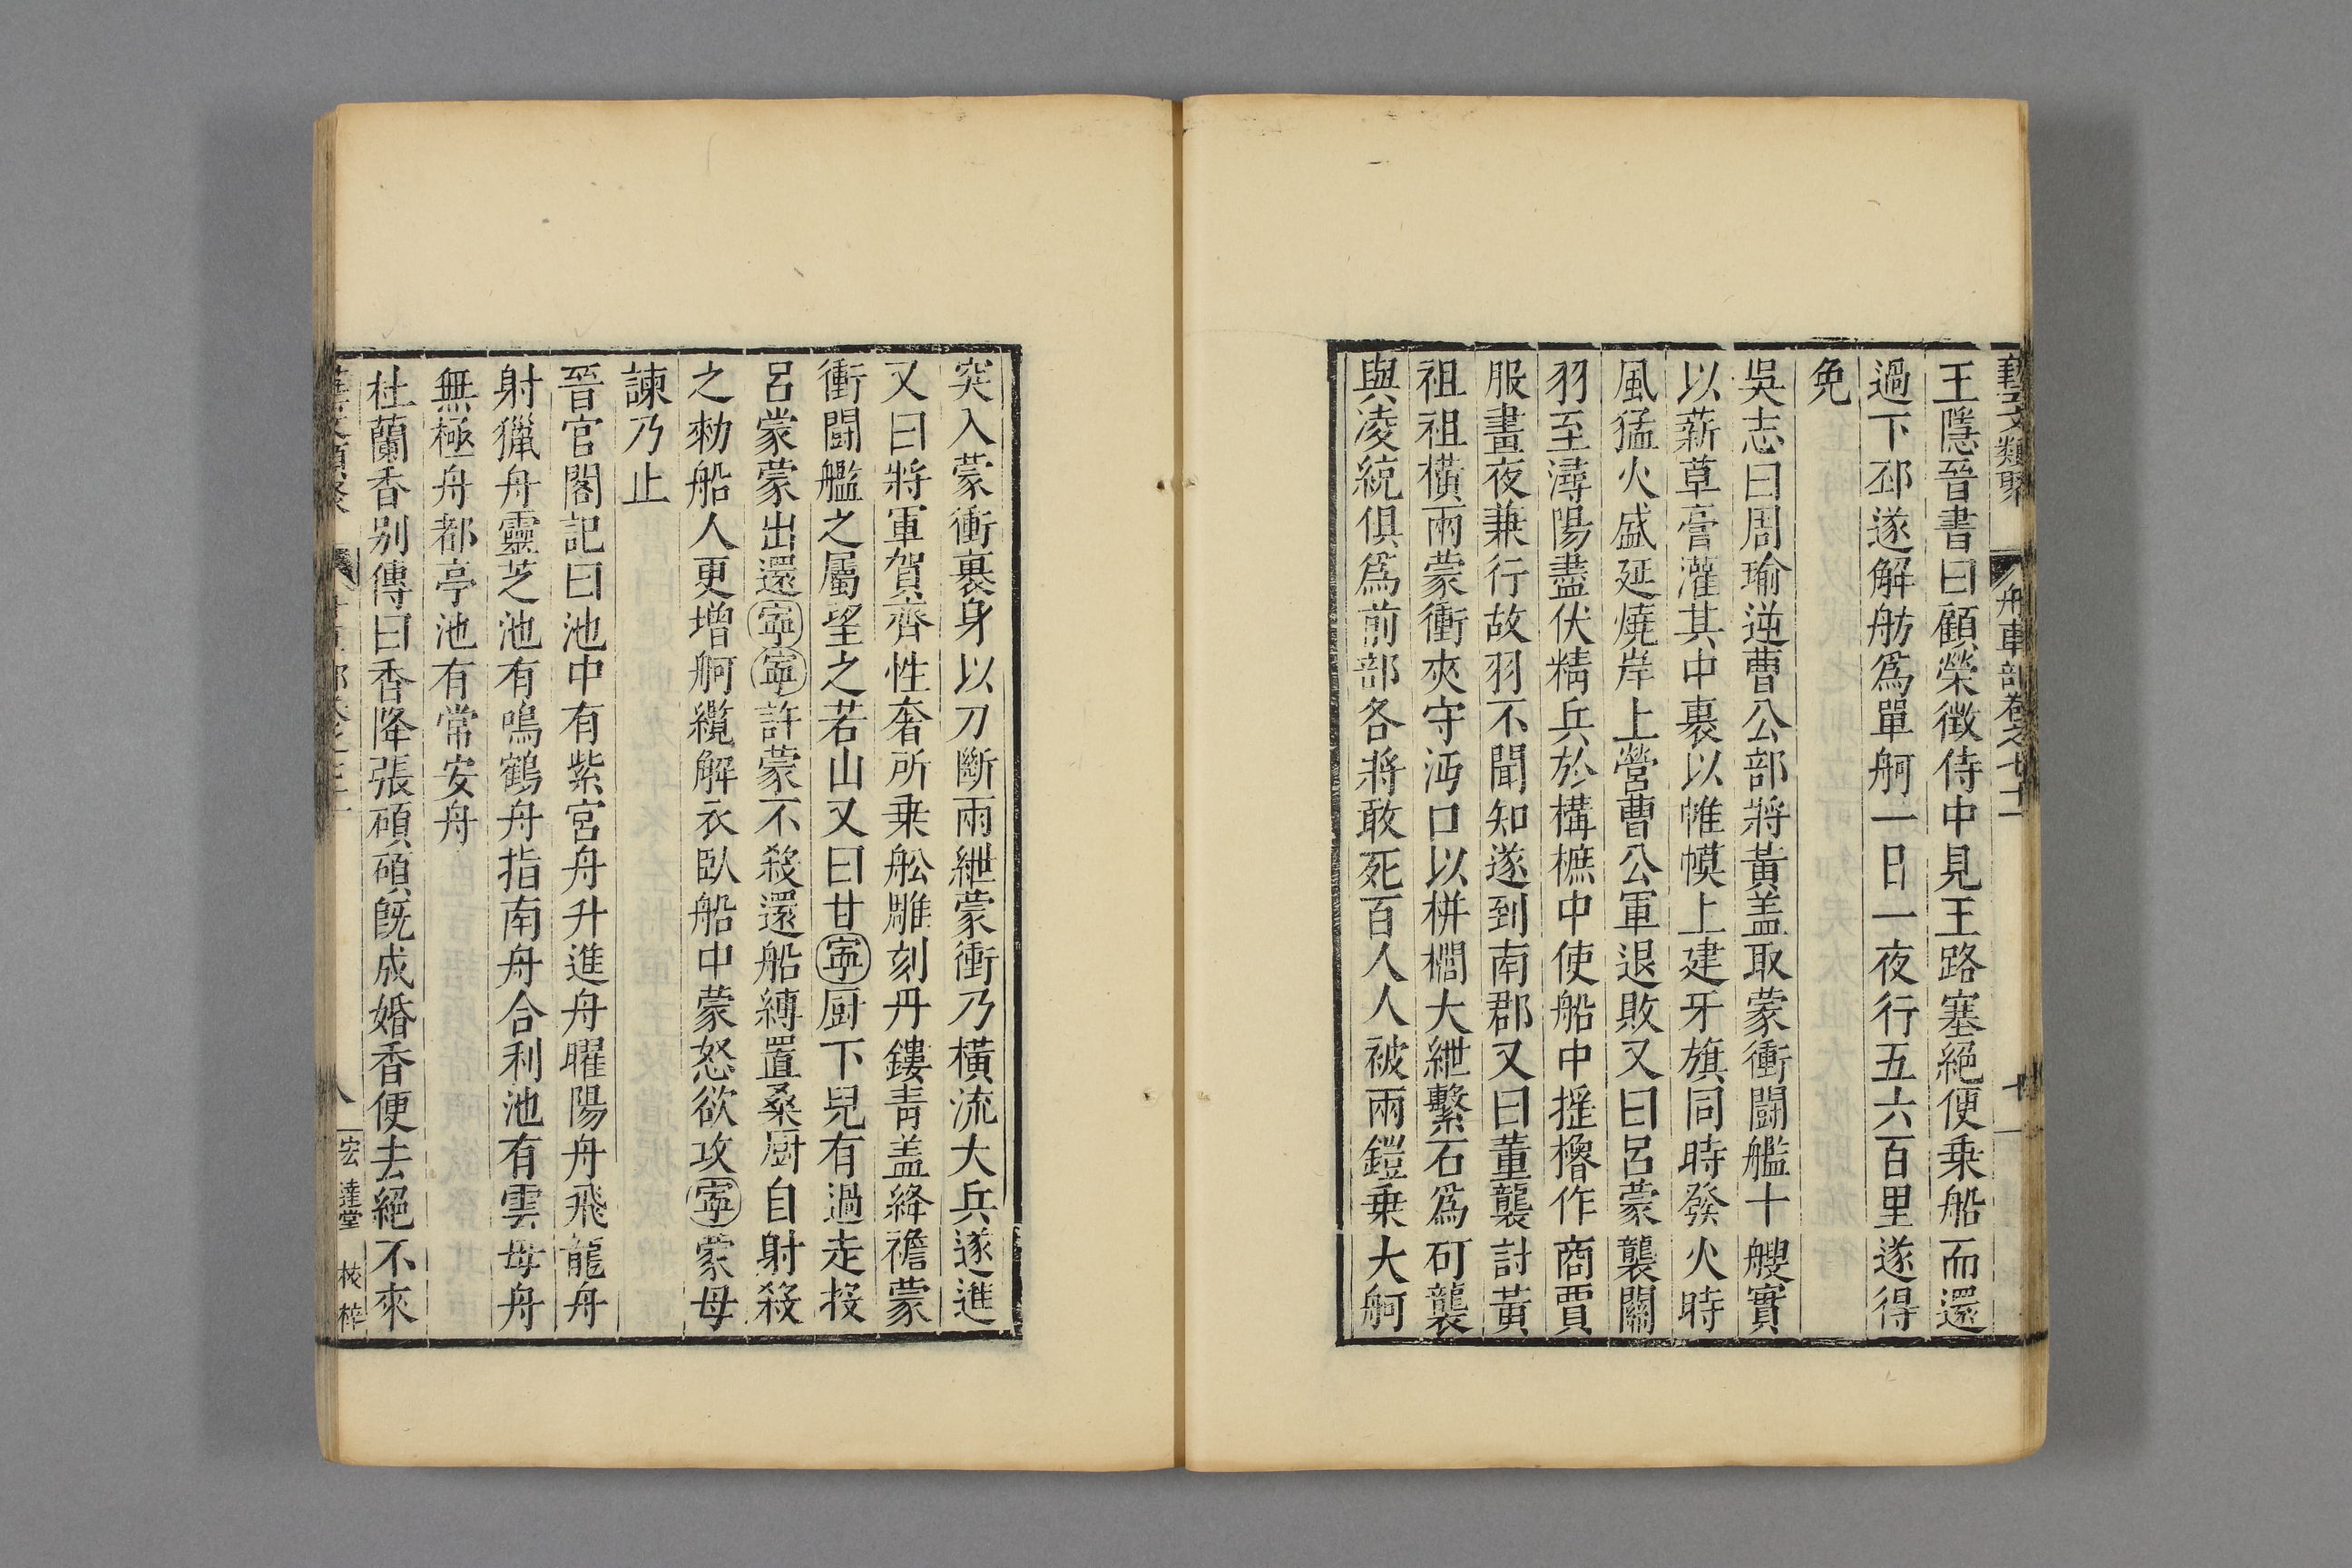 藝文類聚 舟車部卷之七十一
王隱晉書曰顧榮徵侍中見王路塞絕便乗船而還
過下邳遂解舫爲單舸一日一夜行五六百里遂得
免
吳志曰周瑜逆曹公部將黃盖取蒙衝鬪艦十艘實
以薪草膏灌其中裹以帷幙上建牙旗同時發火時
風猛火盛延燒岸上營曹公軍退敗又曰呂蒙襲關
羽至潯陽盡伏精兵於構樜中使船中搖櫓作商賈
服晝夜兼行故羽不聞知遂到南郡又曰董襲討黃
祖祖橫兩蒙衝夾守沔口以栟櫚大紲繫石爲矴襲
與淩統俱爲前部各將敢死百人人被兩鎧乗大舸
突入蒙衝裏身以刀斷兩紲蒙衝乃橫流大兵遂進
又曰將軍賀齊性奢所乗舩雕刻丹鏤青盖絳襜蒙
衝闘艦之屬望之若山又曰甘寧厨下兒有過走投
呂蒙蒙出還寧寧許蒙不殺還船縛置桑厨自射殺
之勑船人更增舸纜解衣臥船中蒙怒欲攻寧蒙母
諫乃止
晉官閣記曰池中有紫宮舟升進舟曜陽舟飛龍舟
射獵舟靈芝池有鳴鶴舟指南舟合利池有雲母舟
無極舟都亭池有常安舟
杜蘭香别傳曰香降張碩碩旣成婚香便去絕不來
八 宏達堂 校梓